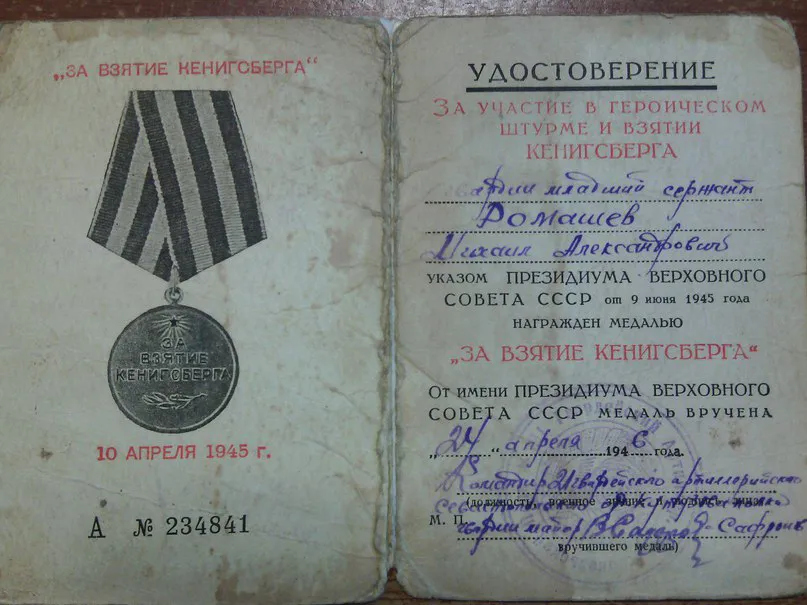 „ЗА ВЗЯТИЕ КЕНИГСБЕРГА“
ЗА
ВЗЯТИЕ
КЕНИГСБЕРГА
10 АПРЕЛЯ 1945 г.
А № 234841
УДОСТОВЕРЕНИЕ
ЗА УЧАСТИЕ В ГЕРОИЧЕСКОМ
ШТУРМЕ И ВЗЯТИИ
КЕНИГСБЕРГА
младший сержант
Ромашев
Михаил Александрович
УКАЗОМ ПРЕЗИДИУМА ВЕРХОВНОГО
СОВЕТА СССР от 9 июня 1945 года
НАГРАЖДЕН МЕДАЛЬЮ
„ЗА ВЗЯТИЕ КЕНИГСБЕРГА“
От имени ПРЕЗИДИУМА ВЕРХОВНОГО
СОВЕТА СССР МЕДАЛЬ ВРУЧЕНА
„24“ апреля 1946 года.
Командир артиллерийского
(должность, военное звание и подпись лица,
М. П. гвардии майор Сафронов
вручившего медаль)